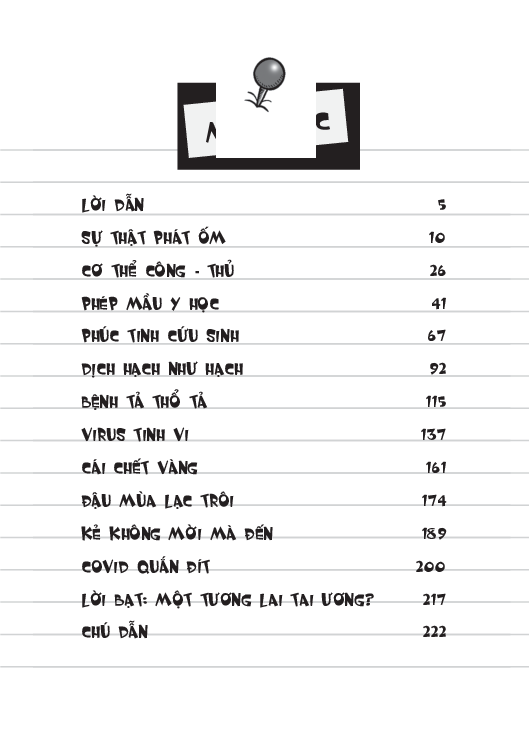 LỜI DẪN 5
SỰ THẬT PHÁT ỐM 10
CƠ THỂ CÔNG - THỦ 26
PHÉP MẦU Y HỌC 41
PHÚC TINH CỨU SINH 67
DỊCH HẠCH NHƯ HẠCH 92
BỆNH TẢ THỔ TẢ 115
VIRUS TINH VI 137
CÁI CHẾT VÀNG 161
ĐẬU MÙA LẠC TRÔI 174
KẺ KHÔNG MỜI MÀ ĐẾN 189
COVID QUẮN ĐÍT 200
LỜI BẠT: MỘT TƯƠNG LAI TAI ƯƠNG? 217
CHÚ DẪN 222